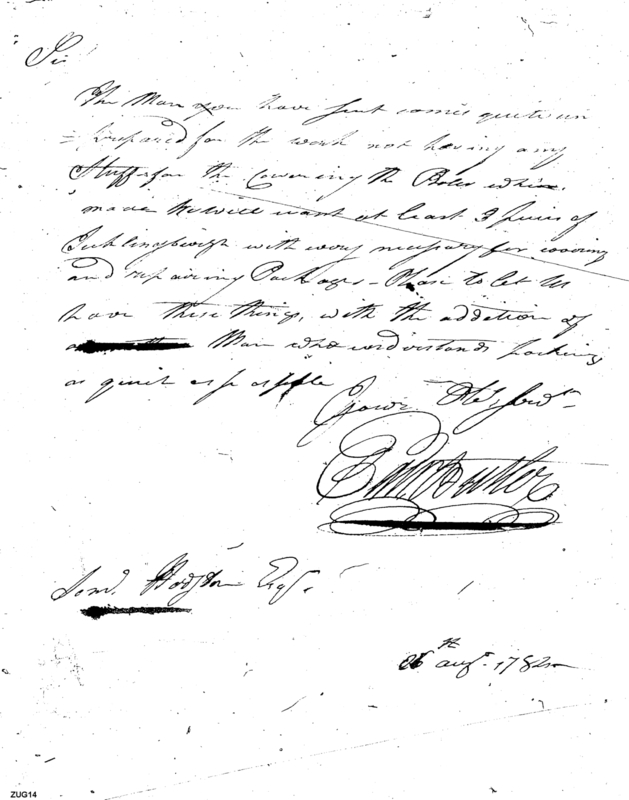 Sir
The Man you have sent comes quite un
= prepared for the work not having any
Stuff for the Covering the Bales which
made he will want at least 3 pieces of
with very necessary for covering
and repairing Packages - Please to let us
have these things, with the addition of
Man who understands packing
as quick as possible
Your Servt
Butler
Hodgson Esqr.
26th augt. 1782
ZUG14